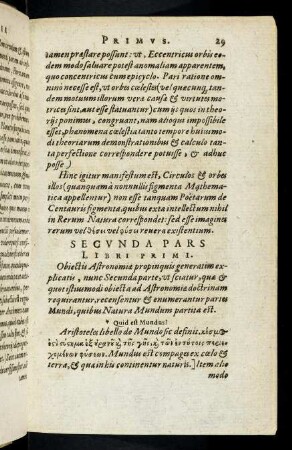 PRIMVS. 29
tamen præstare possunt: vt, Eccentricus orbis eo-
dem modo saluare potest anomaliam apparentem,
quo concentricus cum epicyclo. Pari ratione om-
nino necesse est, vt orbes cælestes (vel quæcunq́; tan-
dem motuum illorum vera causa & virtutes mo-
trices sint, aut esse statuantur) cum ijs quos in theo-
rijs ponimus, congruant, nam alioqui impossibile
esset, phænomena cælestia tanto tempore huiusmo-
di theoriarum demonstrationibus & calculo tan-
ta perfectione correspondere potuisse, & adhuc
posse.)
Hinc igitur manifestum est, Circulos & orbe-
es (quanquam à nonnullis figmenta Mathema-
tica appellentur) non esse tanquam Poëtarum de
Centauris figmenta, quibus extra intellectum nihil
in Rerum Natura correspondet: sed esse imagines
rerum reuera existentium.
SECVNDA PARS
LIBRI PRIMI.
Obiectis Astronomiæ propinquis generatim ex-
plicatis, nunc Secunda parte, vt sciatur, quæ &
quot istiusmodi obiecta ad Astronomiæ doctrinam
requirantur, recensentur & enumerantur partes
Mundi, quibus Natura Mundum partita est.
Quid est Mundus?
Aristoteles libello de Mundo sic definit, κόσμος
ἐστὶ σύστημα ἐξ οὐρανοῦ, καὶ γῆς, καὶ τῶν ἐν τούτοις περιε-
χομένων φύσεων. Mundus est compages ex cælo &
terra, & quæ in his continentur naturis.] Item alio
modo